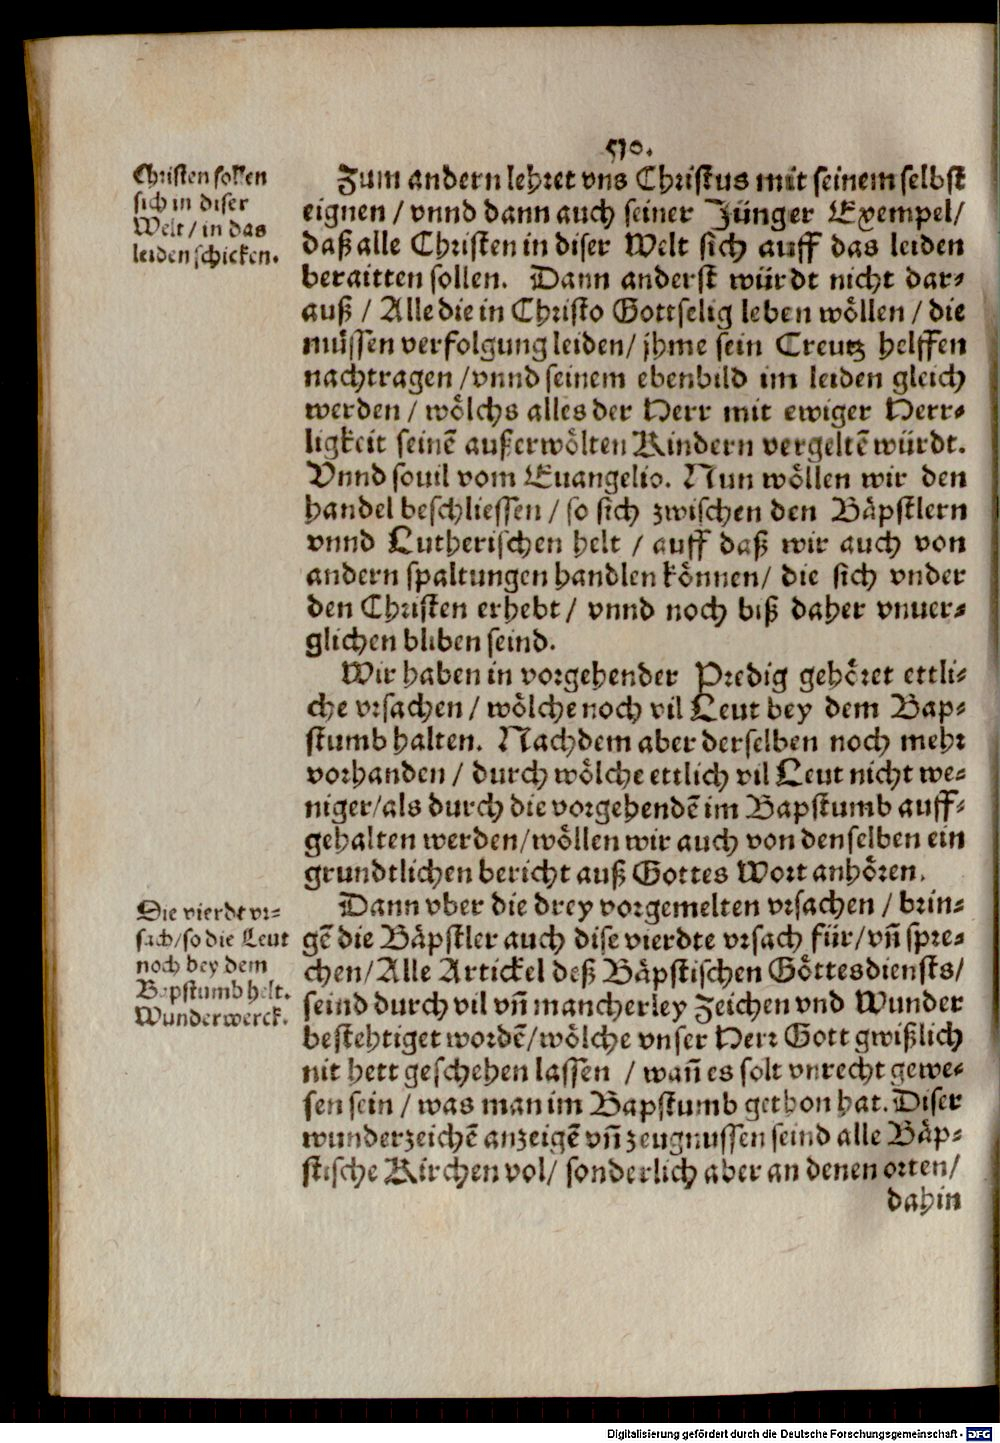 510.
Christen sollen
sich in diser
Welt / in das
leiden schicken.
Zum andern lehret vns Christus mit seinem selbst
eignen / vnnd dann auch seiner Jünger Exempel/
daß alle Christen in diser Welt sich auff das leiden
beraitten sollen. Dann anderst würdt nicht dar-
auß / Alle die in Christo Gottselig leben wöllen / die
müssen verfolgung leiden/ jhme sein Creutz helffen
nachtragen /vnnd seinem ebenbild im leiden gleich
werden / wölchs alles der Herr mit ewiger Herr-
ligkeit seinē außerwölten Kindern vergeltē würdt.
Vnnd souil vom Euangelio. Nun wöllen wir den
handel beschliessen / so sich zwischen den Bäpstlern
vnnd Lutherischen helt / auff daß wir auch von
andern spaltungen handlen können/ die sich vnder
den Christen erhebt / vnnd noch biß daher vnuer-
glichen bliben seind.
Wir haben in vorgehender Predig gehöret ettli-
che vrsachen / wölche noch vil Leut bey dem Bap-
stumb halten. Nachdem aber derselben noch mehr
vorhanden / durch wölche ettlich vil Leut nicht we-
niger/als durch die vorgehendē im Bapstumb auff-
gehalten werden/wöllen wir auch von denselben ein
grundtlichen bericht auß Gottes Wort anhören.
Die vierdt vr-
sach/so die Leut
noch bey dem
Bapstumb helt.
Wunderwerck.
Dann vber die drey vorgemelten vrsachen / brin-
gē die Bäpstler auch dise vierdte vrsach für/vñ spre-
chen/Alle Artickel deß Bäpstischen Göttesdiensts/
seind durch vil vñ mancherley Zeichen vnd Wunder
bestehtiget wordē/wölche vnser Herr Gott gwißlich
nit hett geschehen lassen / wañ es solt vnrecht gewe-
sen sein / was man im Bapstumb gethon hat. Diser
wunderzeichē anzeigē vñ zeugnussen seind alle Bäp-
stische Kirchen vol/ sonderlich aber an denen orten/
dahin
Digitalisierung gefördert durch die Deutsche Forschungsgemeinschaft - DFG